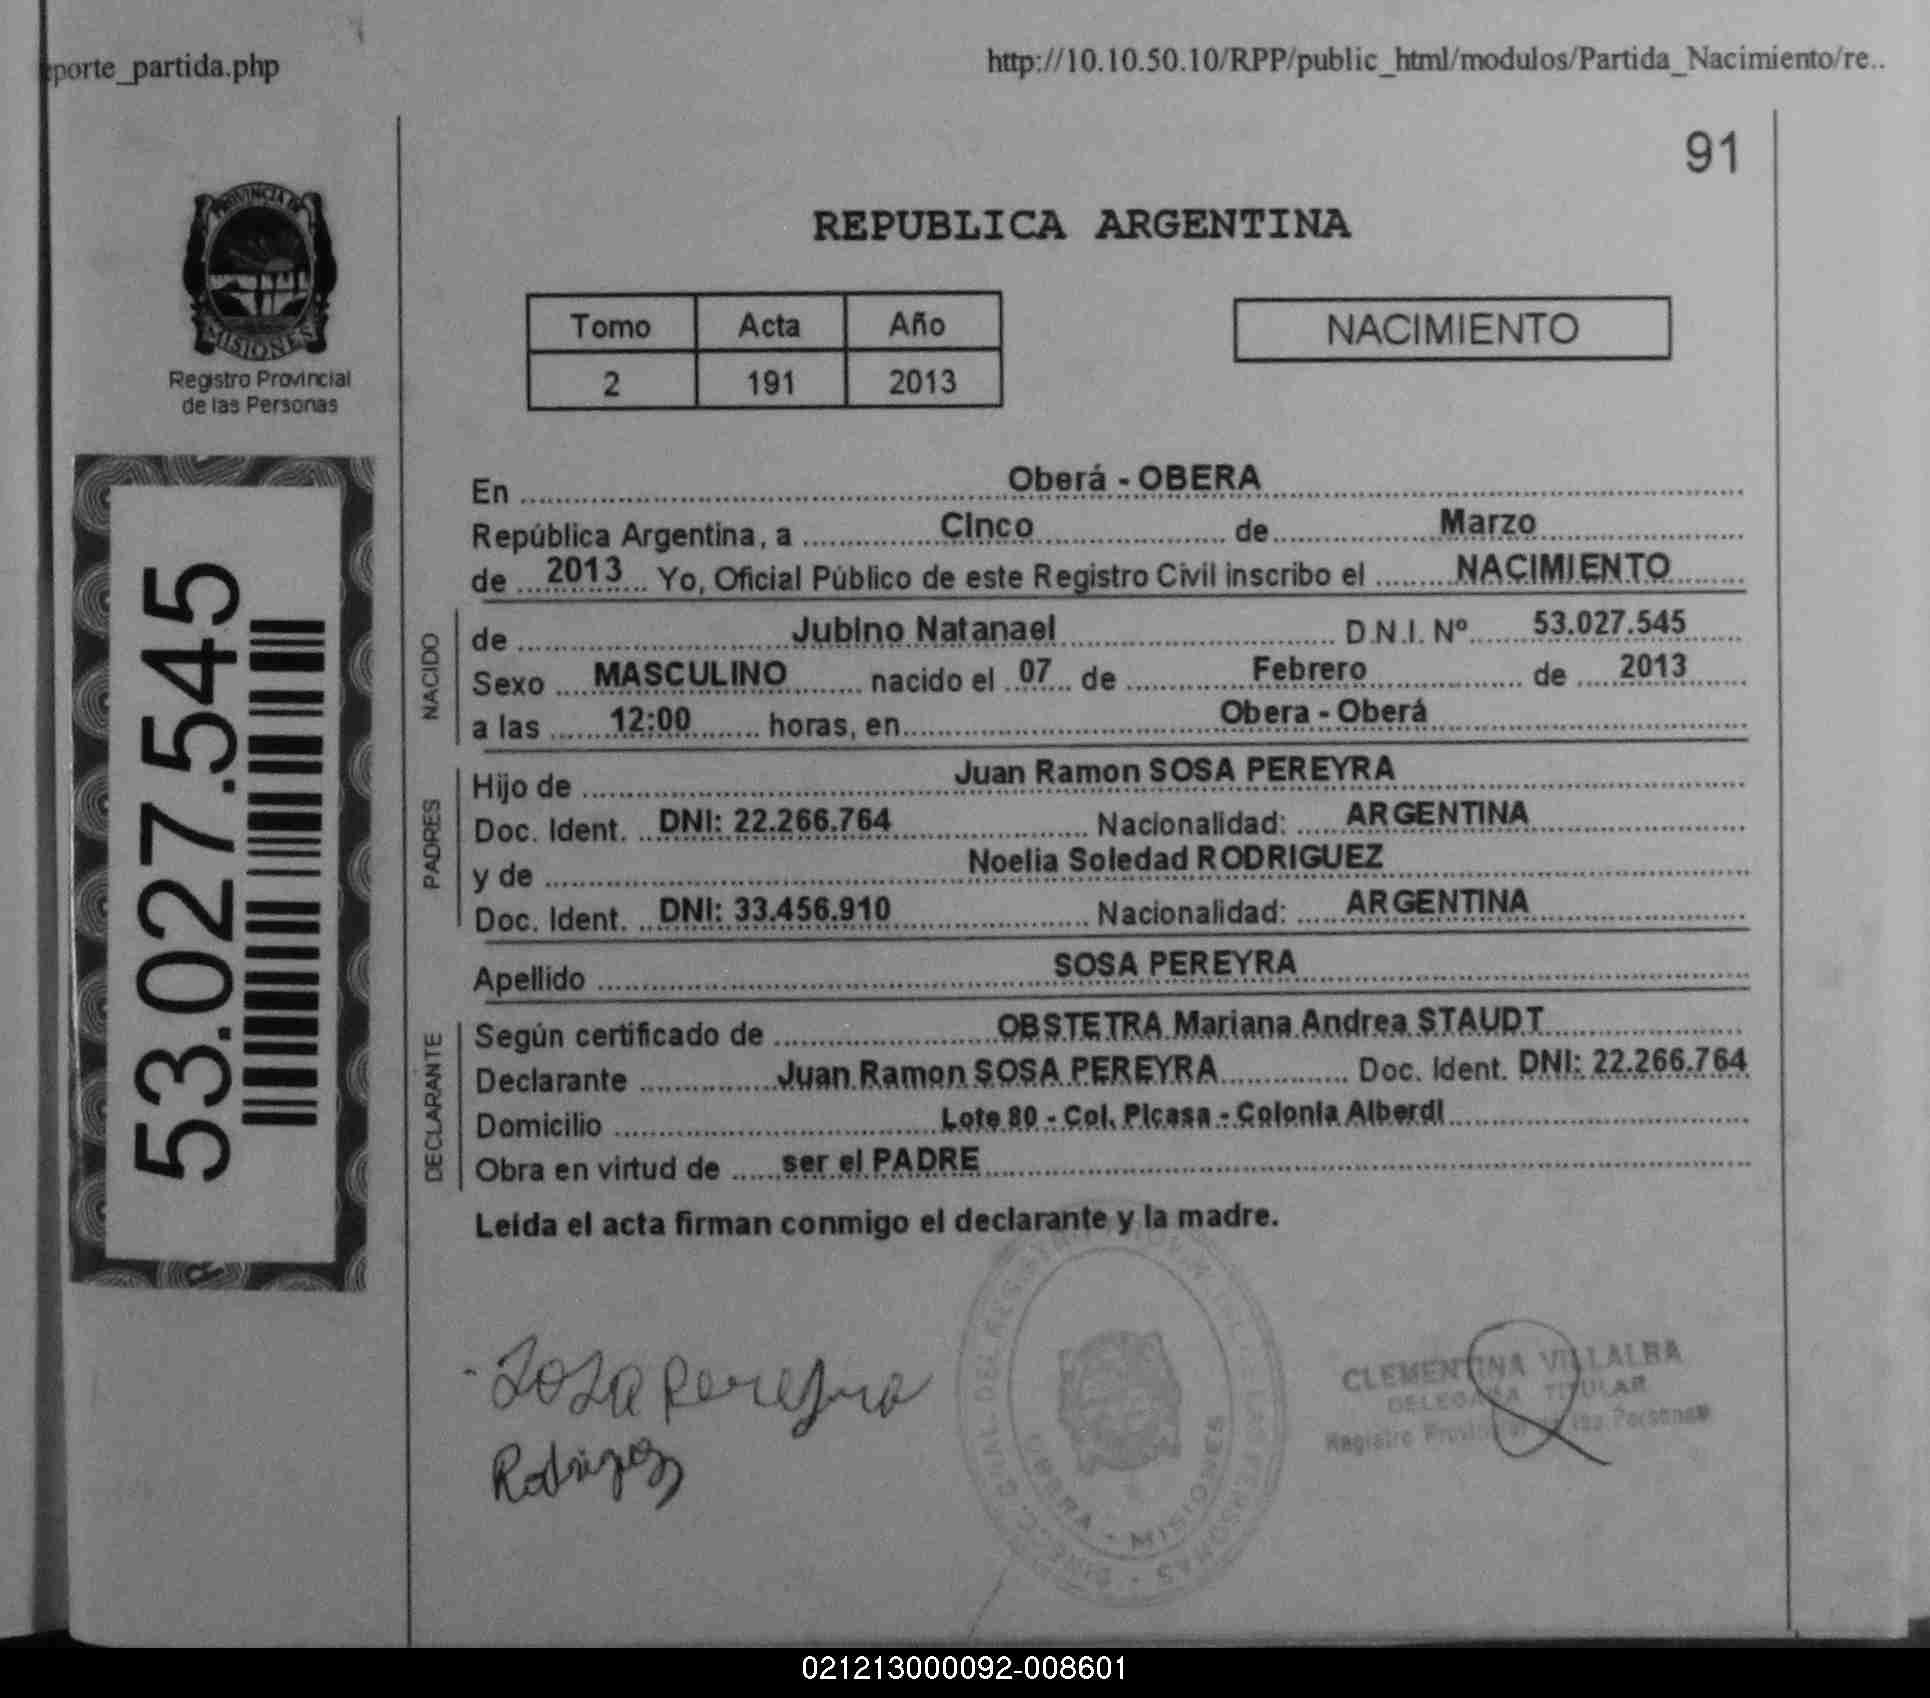 porte_partida.php http://10.10.50.10/RPP/public_html/modulos/Partida_Nacimiento/re..
91
PROVINCIA DE
MISIONES
Registro Provincial
de las Personas
REPUBLICA ARGENTINA
Tomo Acta Año
2 191 2013
NACIMIENTO
53.027.545
En Oberá - OBERA
República Argentina, a Cinco de Marzo
de 2013 Yo, Oficial Público de este Registro Civil inscribo el NACIMIENTO
NACIDO
de Jubino Natanael D.N.I. Nº 53.027.545
Sexo MASCULINO nacido el 07 de Febrero de 2013
a las 12:00 horas, en Obera - Oberá
PADRES
Hijo de Juan Ramon SOSA PEREYRA
Doc. Ident. DNI: 22.266.764 Nacionalidad: ARGENTINA
y de Noelia Soledad RODRIGUEZ
Doc. Ident. DNI: 33.456.910 Nacionalidad: ARGENTINA
Apellido SOSA PEREYRA
DECLARANTE
Según certificado de OBSTETRA Mariana Andrea STAUDT
Declarante Juan Ramon SOSA PEREYRA Doc. Ident. DNI: 22.266.764
Domicilio Lote 80 - Col. Picasa - Colonia Alberdi
Obra en virtud de ser el PADRE
Leída el acta firman conmigo el declarante y la madre.
Sosa Pereyra
Rodriguez
OBERA - MISIONES
CLEMENTINA VILLALBA
DELEGADA TITULAR
Registro Provincial de las Personas
021213000092-008601